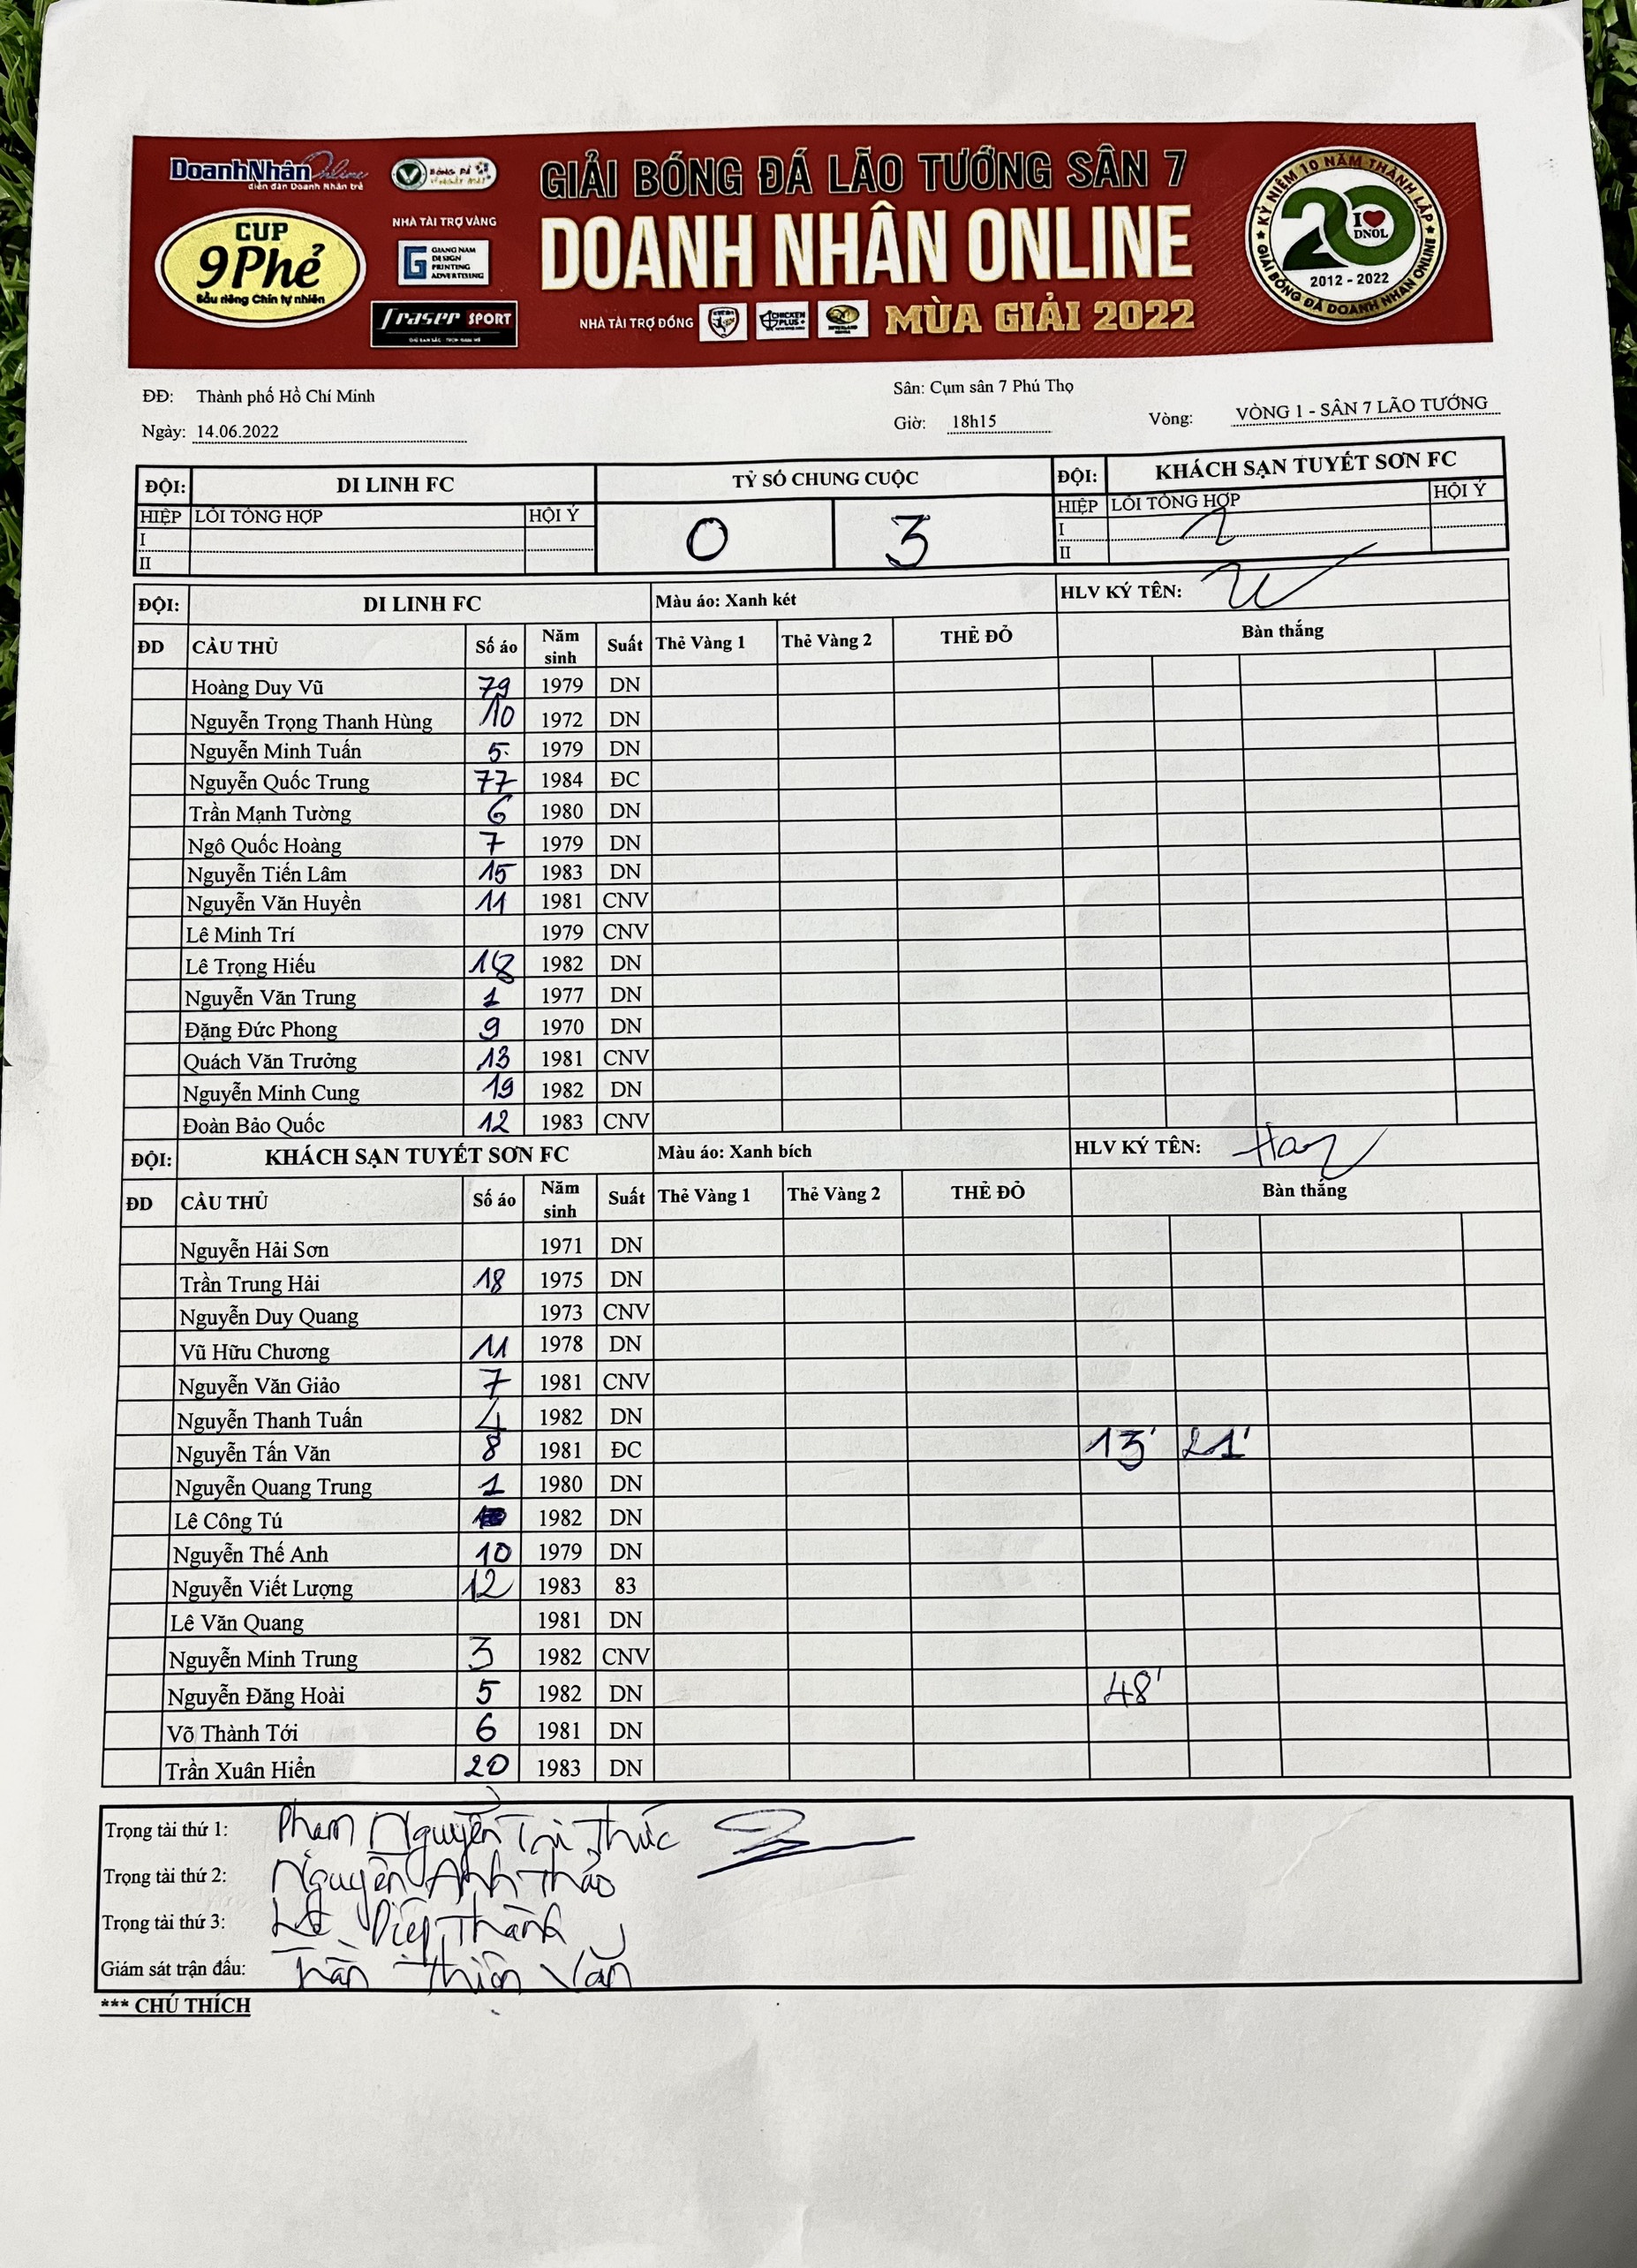 DoanhNhân Online
diễn đàn Doanh Nhân trẻ
CUP
9Phẻ
Sầu riêng Chín tự nhiên
BÓNG ĐÁ
NHÀ TÀI TRỢ VÀNG
GIANG NAM
DESIGN
PRINTING
ADVERTISING
fraser SPORT
GIẢI BÓNG ĐÁ LÃO TƯỚNG SÂN 7
DOANH NHÂN ONLINE
NHÀ TÀI TRỢ ĐỒNG
CHICKEN PLUS+
MÙA GIẢI 2022
KỶ NIỆM 10 NĂM THÀNH LẬP
20
I ❤ DNOL
2012 - 2022
GIẢI BÓNG ĐÁ DOANH NHÂN ONLINE
ĐĐ: Thành phố Hồ Chí Minh
Sân: Cụm sân 7 Phú Thọ
Ngày: 14.06.2022
Giờ: 18h15
Vòng: VÒNG 1 - SÂN 7 LÃO TƯỚNG
ĐỘI: DI LINH FC TỶ SỐ CHUNG CUỘC ĐỘI: KHÁCH SẠN TUYẾT SƠN FC
HIỆP LỖI TỔNG HỢP HỘI Ý 0 3 HIỆP LỖI TỔNG HỢP HỘI Ý
I I
II II
ĐỘI: DI LINH FC Màu áo: Xanh két HLV KÝ TÊN:
ĐD CẦU THỦ Số áo Năm sinh Suất Thẻ Vàng 1 Thẻ Vàng 2 THẺ ĐỎ Bàn thắng
Hoàng Duy Vũ 79 1979 DN
Nguyễn Trọng Thanh Hùng 10 1972 DN
Nguyễn Minh Tuấn 5 1979 DN
Nguyễn Quốc Trung 77 1984 ĐC
Trần Mạnh Tường 6 1980 DN
Ngô Quốc Hoàng 7 1979 DN
Nguyễn Tiến Lâm 15 1983 DN
Nguyễn Văn Huyền 11 1981 CNV
Lê Minh Trí 1979 CNV
Lê Trọng Hiếu 18 1982 DN
Nguyễn Văn Trung 1 1977 DN
Đặng Đức Phong 9 1970 DN
Quách Văn Trưởng 13 1981 CNV
Nguyễn Minh Cung 19 1982 DN
Đoàn Bảo Quốc 12 1983 CNV
ĐỘI: KHÁCH SẠN TUYẾT SƠN FC Màu áo: Xanh bích HLV KÝ TÊN:
ĐD CẦU THỦ Số áo Năm sinh Suất Thẻ Vàng 1 Thẻ Vàng 2 THẺ ĐỎ Bàn thắng
Nguyễn Hải Sơn 1971 DN
Trần Trung Hải 18 1975 DN
Nguyễn Duy Quang 1973 CNV
Vũ Hữu Chương 11 1978 DN
Nguyễn Văn Giảo 7 1981 CNV
Nguyễn Thanh Tuấn 4 1982 DN
Nguyễn Tấn Văn 8 1981 ĐC 13' 21'
Nguyễn Quang Trung 1 1980 DN
Lê Công Tú 1982 DN
Nguyễn Thế Anh 10 1979 DN
Nguyễn Viết Lượng 12 1983 83
Lê Văn Quang 1981 DN
Nguyễn Minh Trung 3 1982 CNV
Nguyễn Đăng Hoài 5 1982 DN 48'
Võ Thành Tới 6 1981 DN
Trần Xuân Hiển 20 1983 DN
Trọng tài thứ 1: Phạm Nguyễn Tri Thức
Trọng tài thứ 2: Nguyễn Anh Thảo
Trọng tài thứ 3: Diệp Thành
Giám sát trận đấu: Trần Thiện Văn
*** CHÚ THÍCH